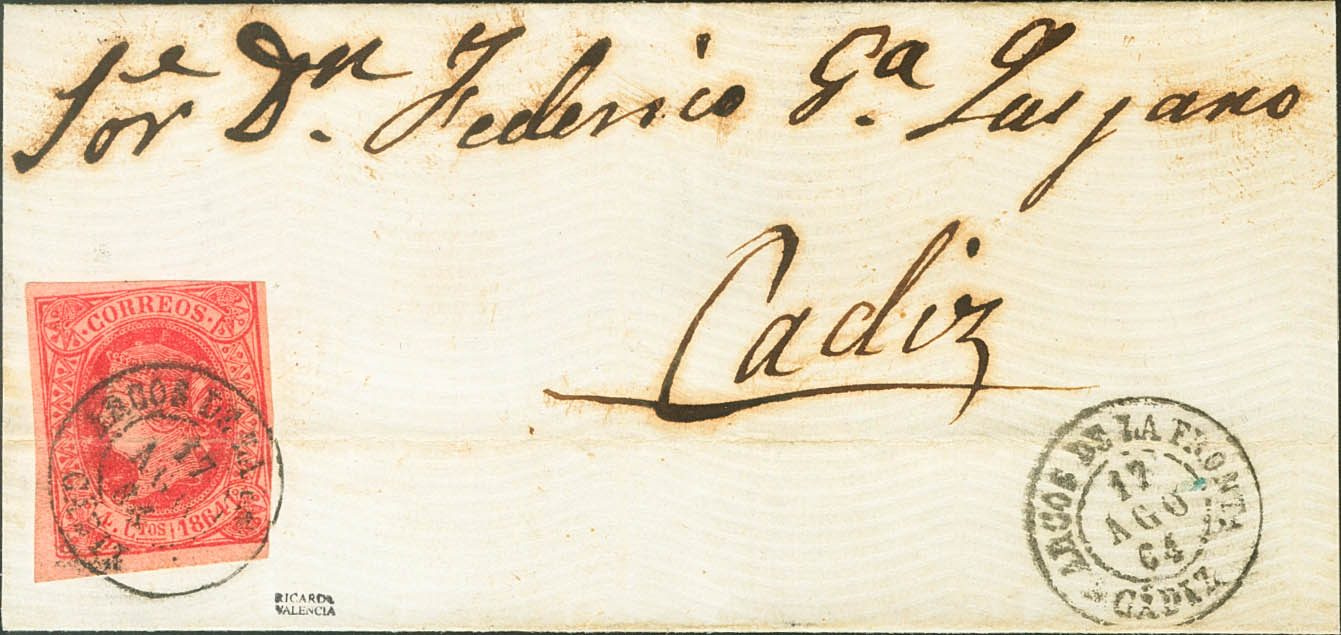 Sor Dn. Federico Ga.
Cadiz
CORREOS
4 Ctos 1864
ARCOS DE LA
17
AGO
64
CADIZ
ARCOS DE LA FRONTA
17
AGO
64
CÁDIZ
RICARDO
VALENCIA